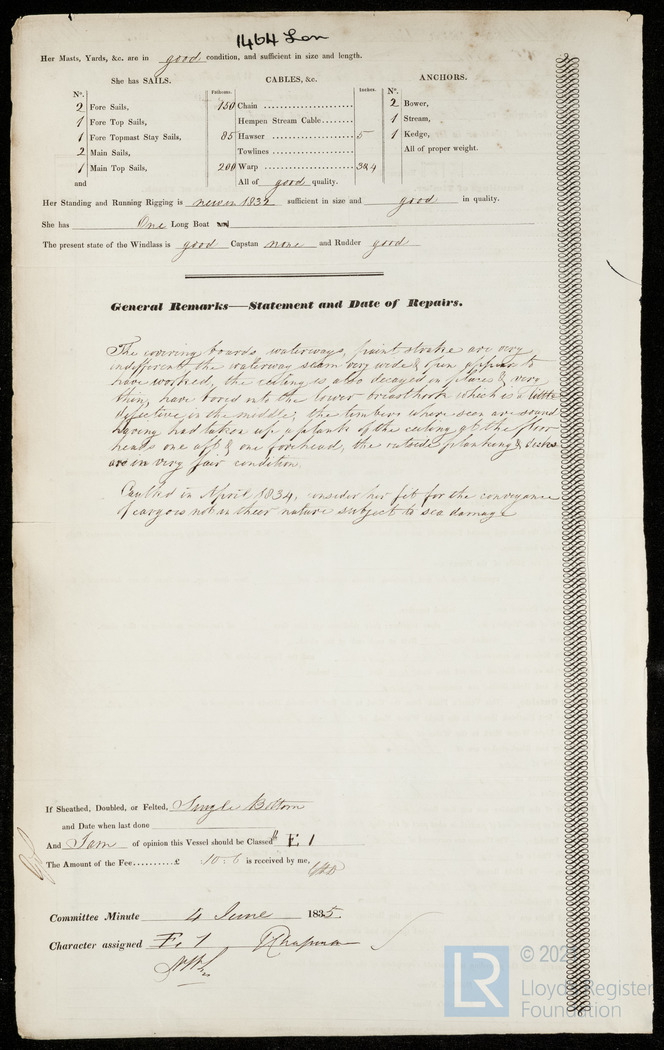 1464 Lon
Her Masts, Yards, &c. are in good condition, and sufficient in size and length.
She has SAILS.
Nº.
2 Fore Sails,
1 Fore Top Sails,
1 Fore Topmast Stay Sails,
2 Main Sails,
1 Main Top Sails,
and
CABLES, &c.
Fathoms. Inches.
150 Chain
Hempen Stream Cable
85 Hawser 5
Towlines
200 Warp 3&4
All of good quality.
ANCHORS.
Nº.
2 Bower,
1 Stream,
1 Kedge,
All of proper weight.
Her Standing and Running Rigging is new in 1832 sufficient in size and good in quality.
She has One Long Boat and
The present state of the Windlass is good Capstan none and Rudder good
General Remarks—Statement and Date of Repairs.
The covering boards, waterways, paint strake are very
indifferent the waterway seam very wide & open appears to
have worked, the ceiling is also decayed in places & very
thin, have bored into the lower breasthook which is a little
defective in the middle; the timbers where seen are sound
having had taken up a plank of the ceiling at the floor
heads one aft & one forehead, the outside planking & decks
are in very fair condition.
Caulked in April 1834, consider her fit for the conveyance
of cargoes not in their nature subject to sea damage
If Sheathed, Doubled, or Felted, Single Bottom
and Date when last done
And I am of opinion this Vessel should be Classed E 1
The Amount of the Fee..........£ 10:6 is received by me,
Committee Minute 4 June 1835.
Character assigned E. 1 Chapman
LR
Lloyd's Register
Foundation